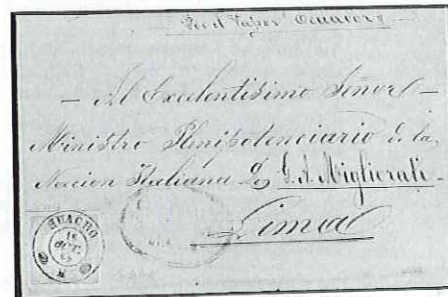 Por el Vapor "Ecuador"
— Al Excelentisimo Señor —
Ministro Plenipotenciario de la
Nacion Italiana Dn G. A. Migliorati -
Lima
HUACHO